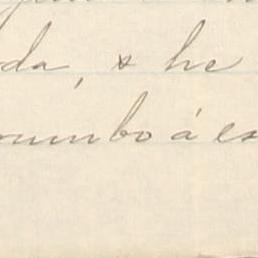 da, & he
rumbo á es